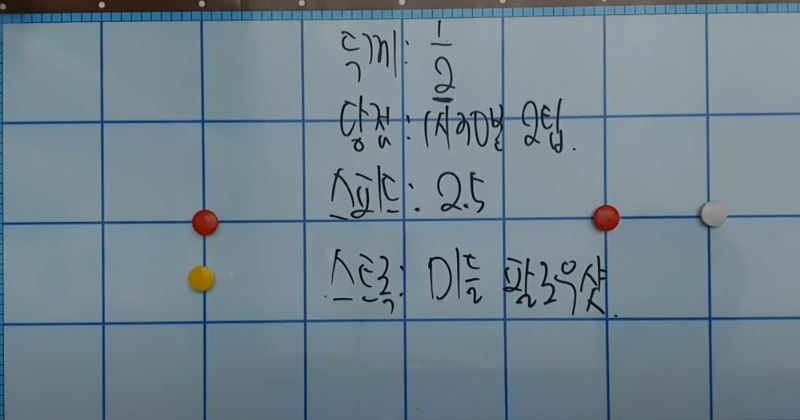 두께: 1/2
당점: 1시30분 2팁.
스피드: 2.5
스트록: 미들 팔로우샷.